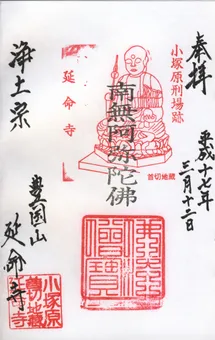 奉拝
平成十七年
三月十二日
小塚原刑場跡
南無阿弥陀佛
首切地蔵
延命寺
浄土宗
豊国山
延命寺
佛法僧寶
小塚原
首切地蔵
延命寺